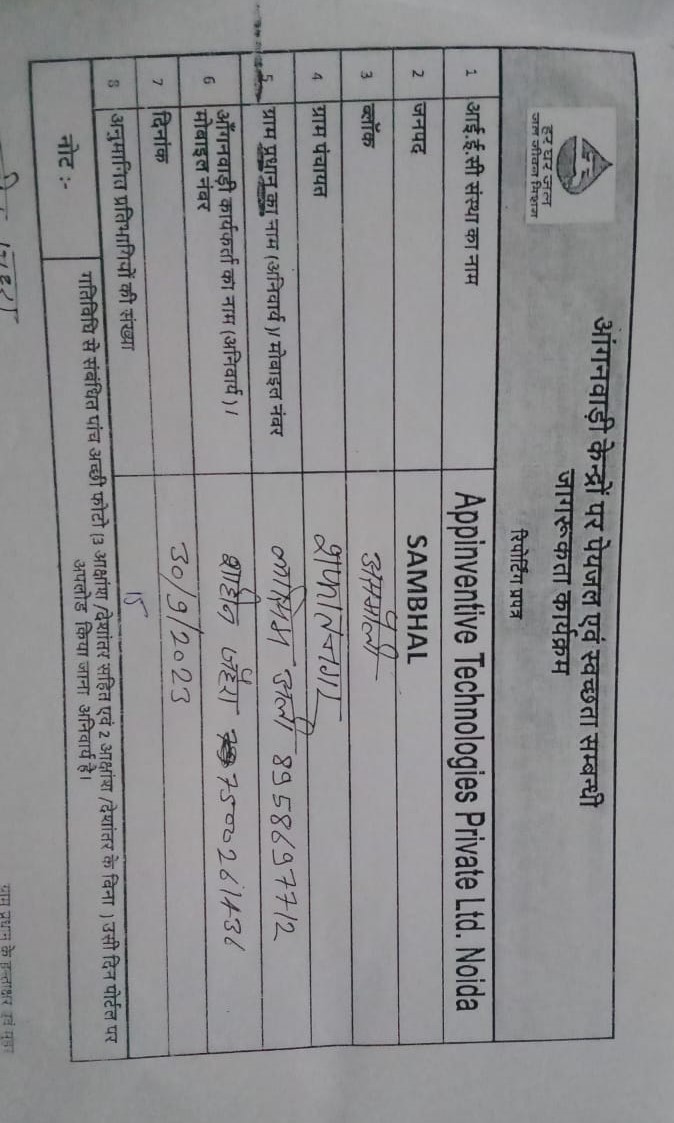 हर घर जल
जल जीवन मिशन
आंगनवाड़ी केन्द्रों पर पेयजल एवं स्वच्छता सम्बन्धी
जागरूकता कार्यक्रम
रिपोर्टिंग प्रपत्र
1 आई.ई.सी संस्था का नाम Appinventive Technologies Private Ltd. Noida
2 जनपद SAMBHAL
3 ब्लॉक असमोली
4 ग्राम पंचायत
5 ग्राम प्रधान का नाम (अनिवार्य)/ मोबाइल नंबर अली 8958697712
6 आँगनवाड़ी कार्यकर्ता का नाम (अनिवार्य)/
मोबाइल नंबर शाहीन 7500261436
7 दिनांक 30/9/2023
8 अनुमानित प्रतिभागियों की संख्या 15
नोट :- गतिविधि से संबंधित पांच अच्छी फोटो (3 आक्षांश /देशांतर सहित एवं 2 आक्षांश /देशांतर के बिना ) उसी दिन पोर्टल पर
अपलोड किया जाना अनिवार्य है।
ग्राम प्रधान के हस्ताक्षर एवं मुहर